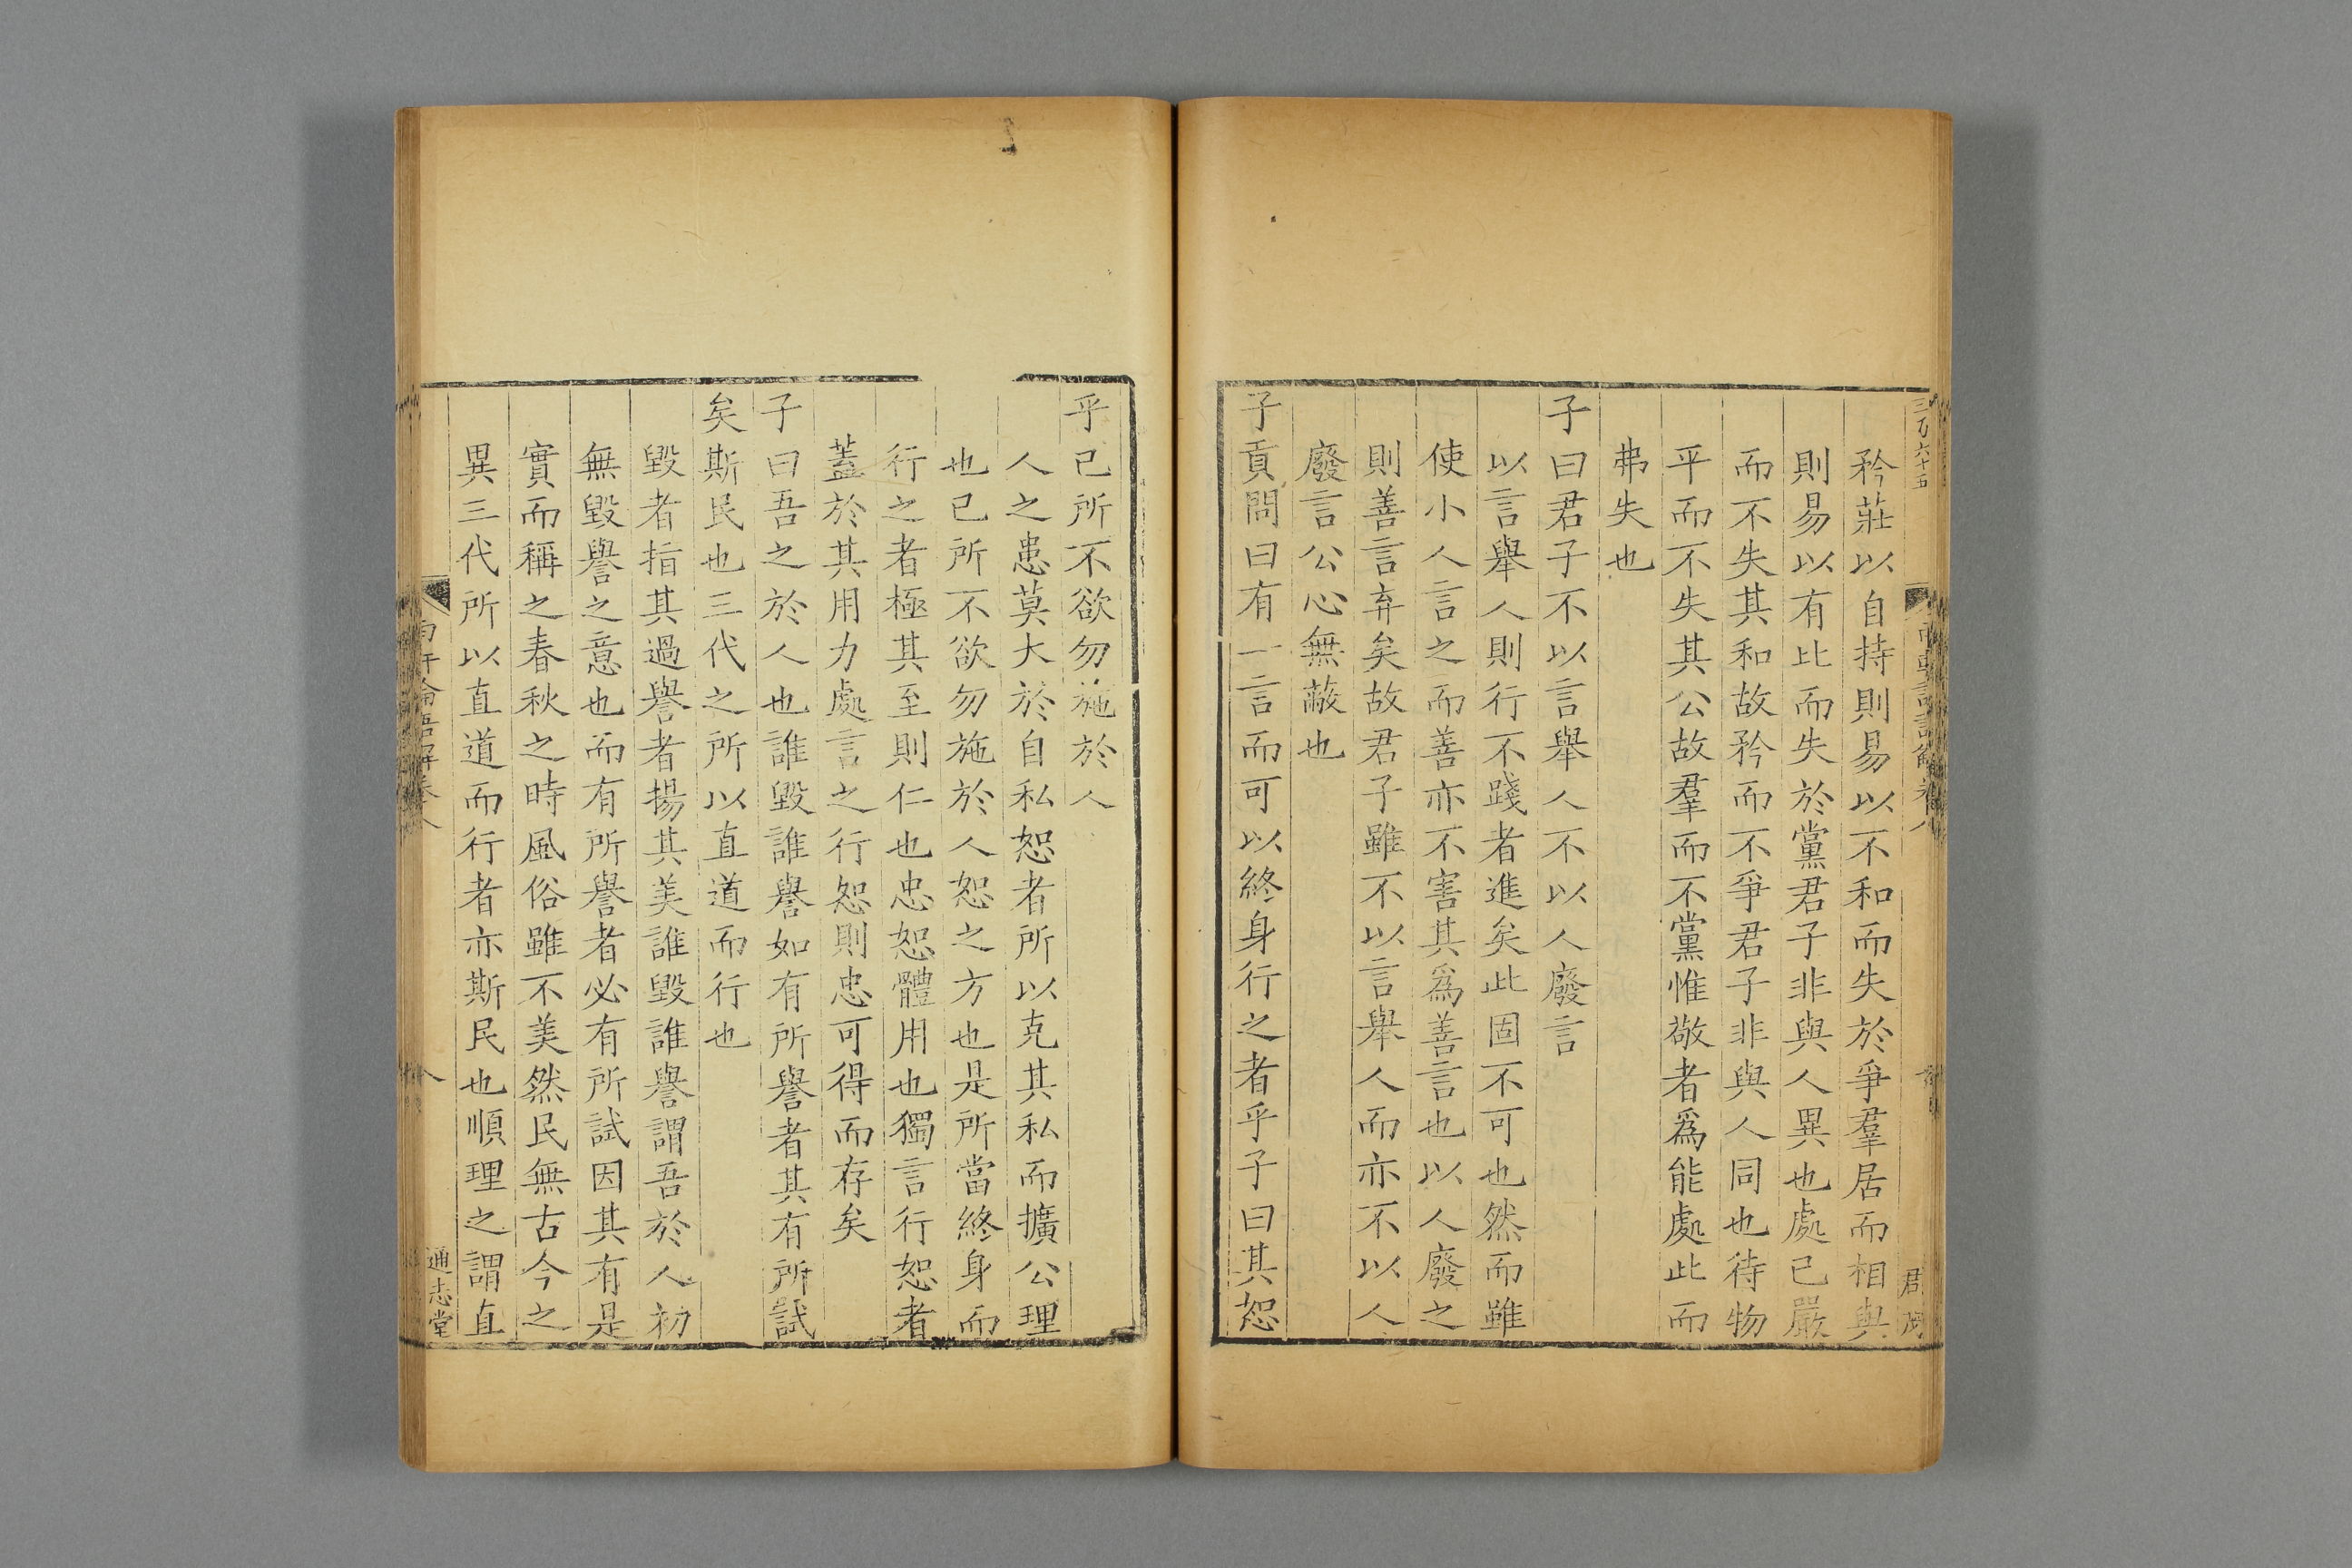 三百六十五
君
矜莊以自持則易以不和而失於爭羣居而相與
則易以有比而失於黨君子非與人異也處己嚴
而不失其和故矜而不爭君子非與人同也待物
平而不失其公故羣而不黨惟敬者爲能處此而
弗失也
子曰君子不以言舉人不以人廢言
以言舉人則行不踐者進矣此固不可也然而雖
使小人言之而善亦不害其爲善言也以人廢之
則善言弃矣故君子雖不以言舉人而亦不以人
廢言公心無蔽也
子貢問曰有一言而可以終身行之者乎子曰其恕
乎己所不欲勿施於人
人之患莫大於自私恕者所以克其私而擴公理
也己所不欲勿施於人恕之方也是所當終身而
行之者極其至則仁也忠恕體用也獨言行恕者
蓋於其用力處言之行恕則忠可得而存矣
子曰吾之於人也誰毀誰譽如有所譽者其有所試
矣斯民也三代之所以直道而行也
毀者指其過譽者揚其美誰毀誰譽謂吾於人初
無毀譽之意也而有所譽者必有所試因其有是
實而稱之春秋之時風俗雖不美然民無古今之
異三代所以直道而行者亦斯民也順理之謂直
論語解卷八
八
通志堂